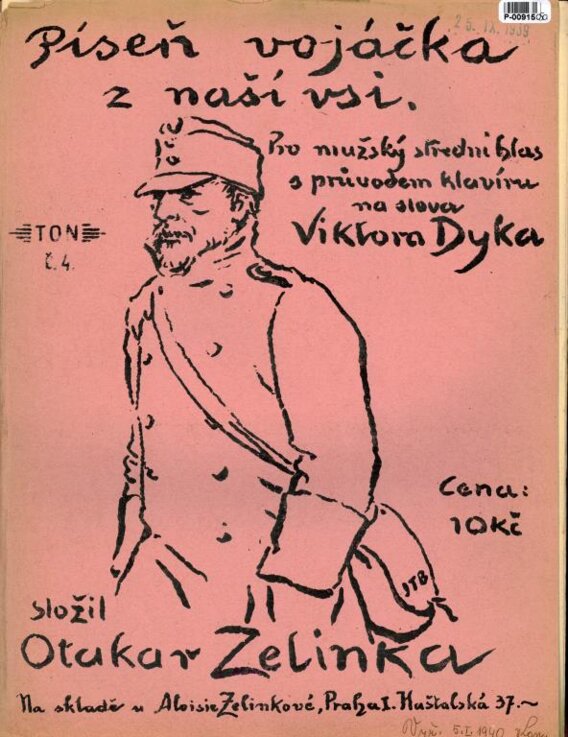 P-009150
25. IX. 1939
Píseň vojáčka
z naší vsi.
Pro mužský střední hlas
s průvodem klavíru
na slova
Viktora Dyka
TON
č.4.
Cena:
10Kč
JTB
složil
Otakar Zelinka
Na skladě u Aloisie Zelinkové, Praha I. Haštalská 37.~
5.I.1940